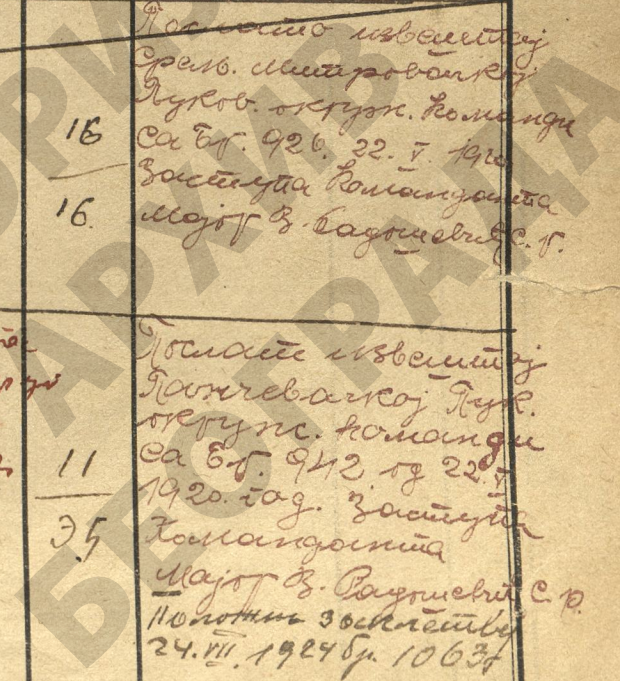 Послато извештај
Срем. Митровачкој
Пуков. окруж. команди
са Бр. 926. 22. V. 1920
Заступа Команданта
Мајор В. Радишевић С. Р.
16
16.
Послат извештај
Панчевачкој Пук.
окруж. команди
са Бр. 942 од 22. V
1920. год. Заступа
Команданта
Мајор В. Радишевић С. Р.
11
35
Положи заклетву
24. VII. 1924 бр. 1063
ИСТОРИЈСКИ
АРХИВ
БЕОГРАДА